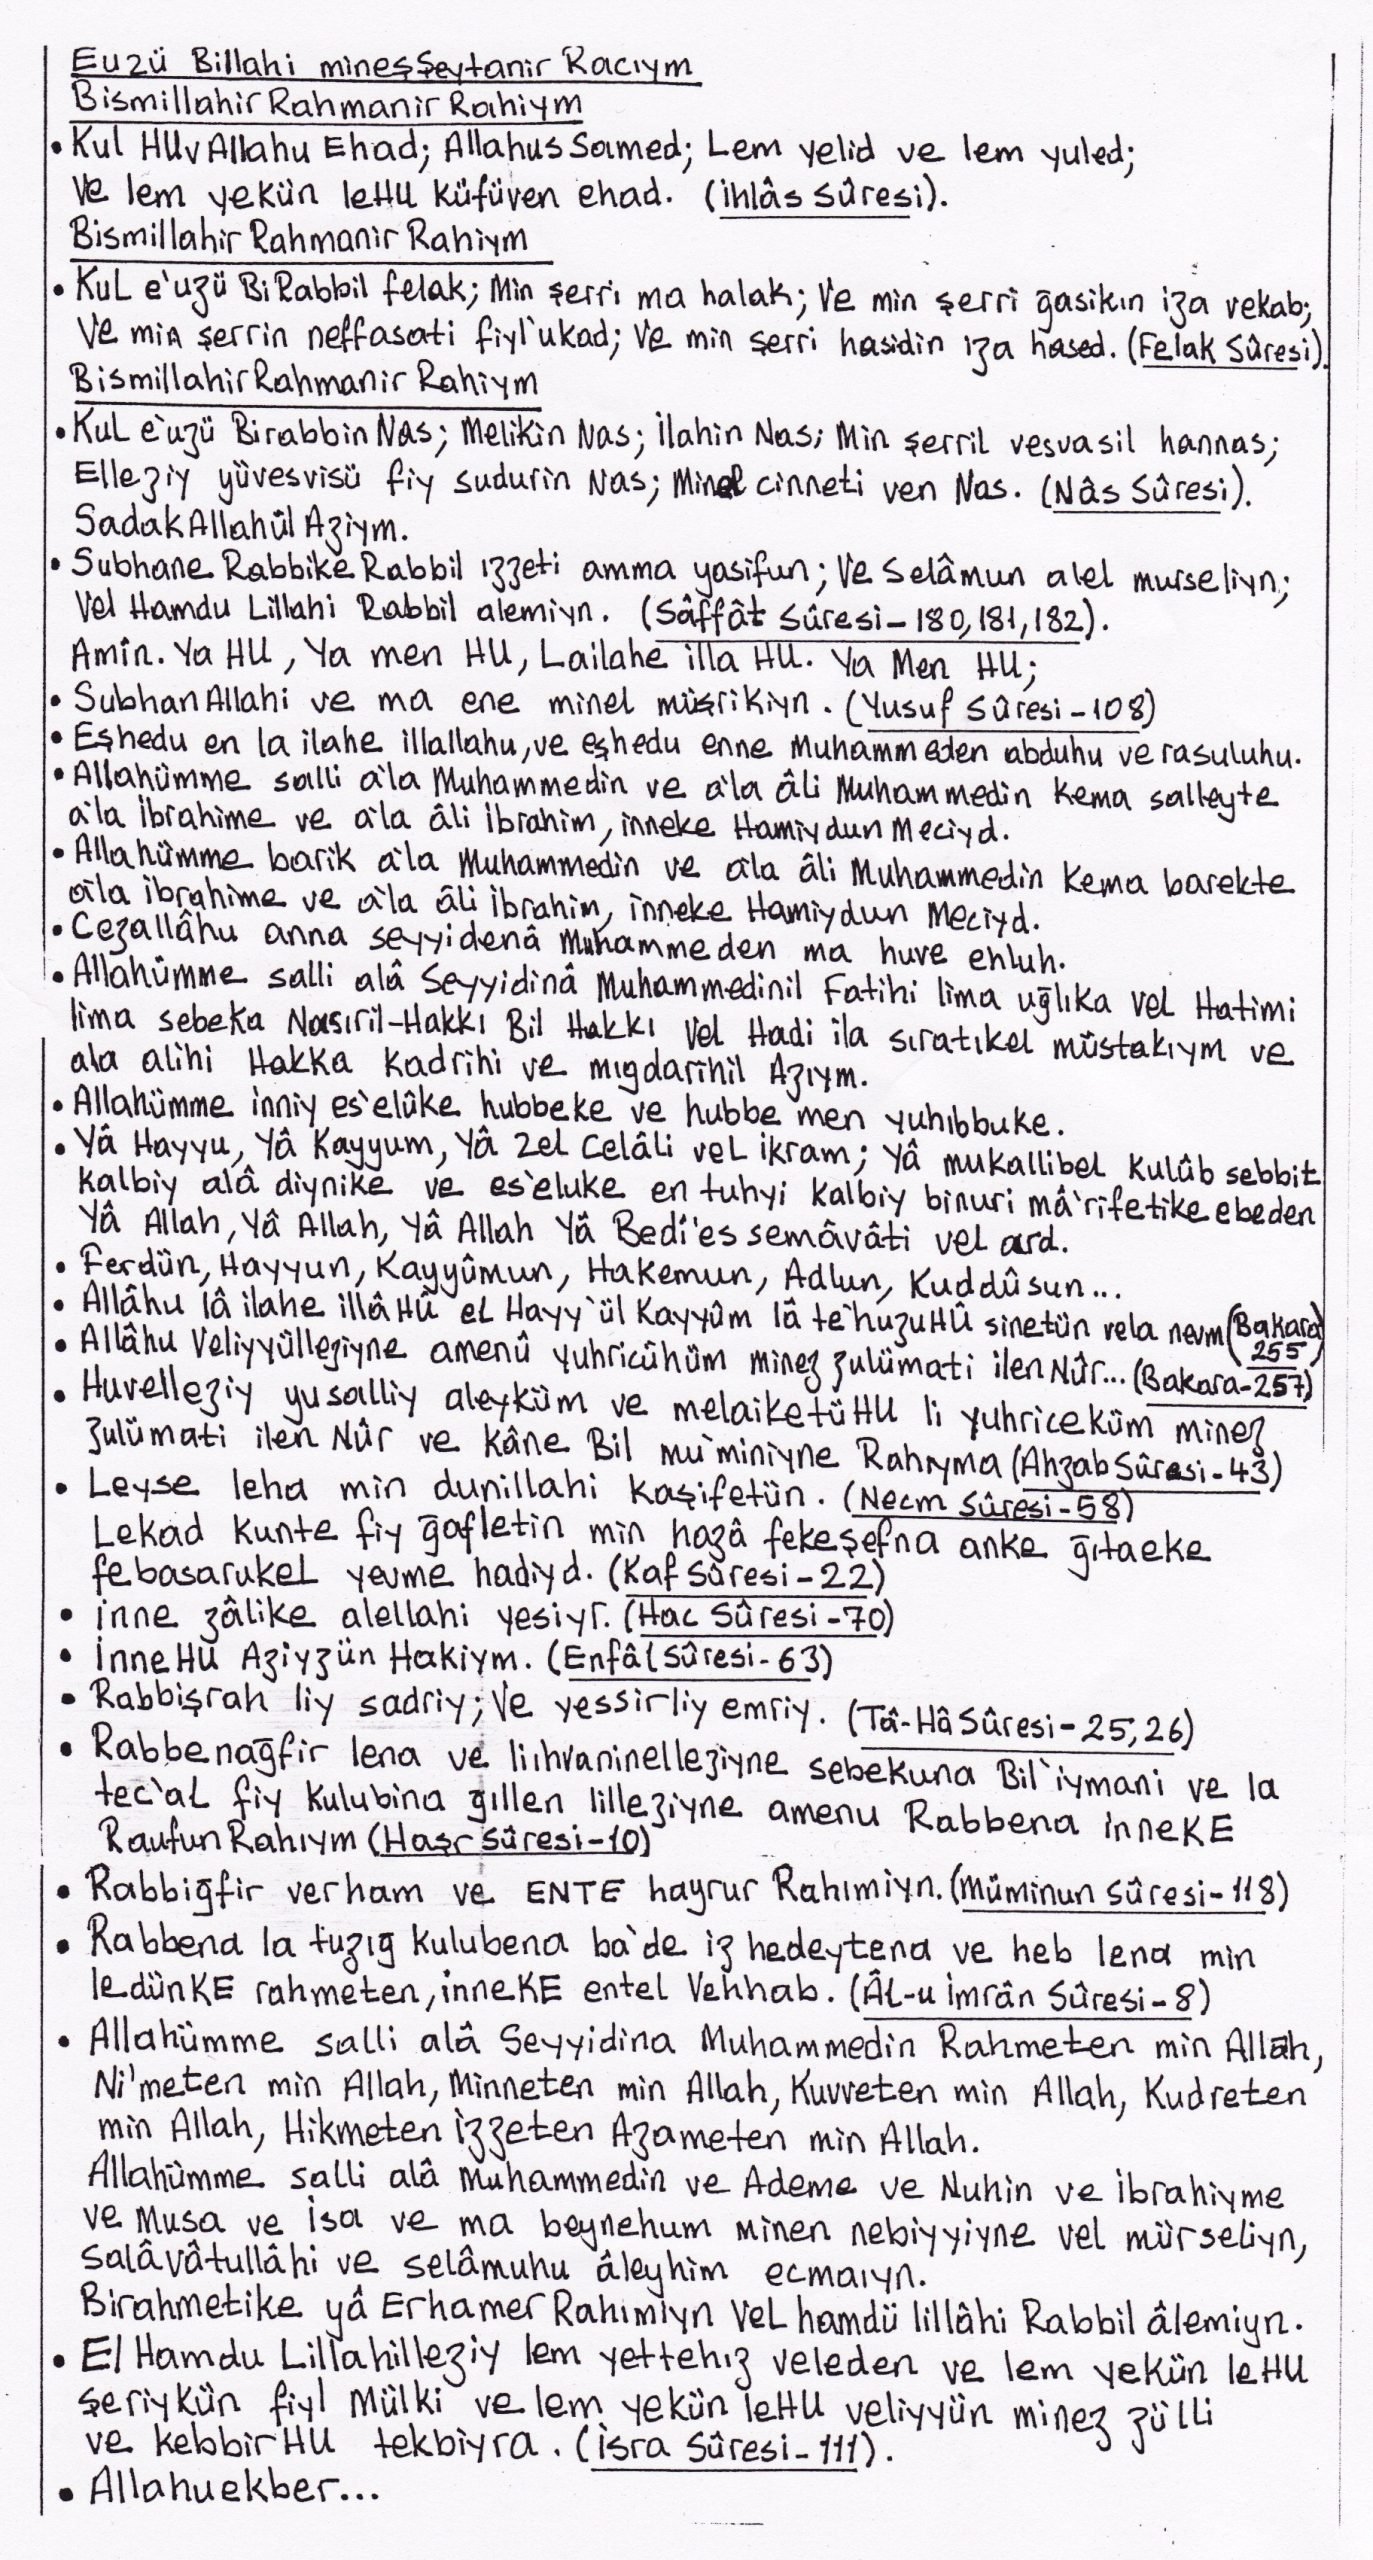 Euzü Billahi mineşşeytanir Racıym
Bismillahir Rahmanir Rahiym
• Kul HUvAllahu Ehad; Allahus Samed; Lem yelid ve lem yuled;
ve lem yekün leHU küfüven ehad. (İhlâs Sûresi).
Bismillahir Rahmanir Rahiym
• Kul e'uzü BiRabbil felak; Min şerri ma halak; Ve min şerri ğasikın iza vekab;
Ve min şerrin neffasati fiyl'ukad; Ve min şerri hasidin iza hased. (Felak Sûresi).
Bismillahir Rahmanir Rahiym
• Kul e'uzü Birabbin Nas; Melikin Nas; İlahin Nas; Min şerril vesvasil hannas;
Elleziy yüvesvisü fiy sudurin Nas; Minel cinneti ven Nas. (Nâs Sûresi).
SadakAllahül Aziym.
• Subhane Rabbike Rabbil ızzeti amma yasifun; Ve Selâmun alel murseliyn;
Vel Hamdu Lillahi Rabbil alemiyn. (Sâffât Sûresi-180,181,182).
Amin. Ya HU, Ya men HU, Lailahe illa HU. Ya Men HU;
• SubhanAllahi ve ma ene minel müşrikiyn. (Yusuf Sûresi-108)
• Eşhedu en la ilahe illallahu, ve eşhedu enne Muhammeden abduhu ve rasuluhu.
• Allahümme salli a'la Muhammedin ve a'la âli Muhammedin kema salleyte
a'la İbrahime ve a'la âli İbrahim, inneke Hamiydun Meciyd.
• Allahümme barik a'la Muhammedin ve a'la âli Muhammedin kema barekte
a'la İbrahime ve a'la âli İbrahim, inneke Hamiydun Meciyd.
• Cezallâhu anna seyyidenâ Muhammeden ma huve ehluh.
• Allahümme salli alâ Seyyidinâ Muhammedinil Fatihi lima uğlıka vel Hatimi
lima sebeka Nasıril-Hakkı Bil Hakkı vel Hadi ila sıratıkel müstakıym ve
ala alihi Hakka kadrihi ve mıgdarihil Azıym.
• Allahümme inniy es'elüke hubbeke ve hubbe men yuhıbbuke.
• Yâ Hayyu, Yâ Kayyum, Yâ Zel Celâli vel ikram; Yâ mukallibel kulûb sebbit
kalbiy alâ diynike ve es'eluke en tuhyi kalbiy binuri mâ'rifetike ebeden
Yâ Allah, Yâ Allah, Yâ Allah Yâ Bedi'es semâvâti vel ard.
• Ferdün, Hayyun, Kayyûmun, Hakemun, Adlun, Kuddûsun...
• Allâhu lâ ilahe illâ HÛ el Hayy'ül Kayyûm lâ te'huzuHÛ sinetün vela nevm (Bakara 255)
• Allâhu Veliyyülleziyne amenû yuhricûhüm minez zulümati ilen Nûr... (Bakara-257)
• Huvelleziy yusalliy aleyküm ve melaiketüHU li yuhriceküm minez
zulümati ilen Nûr ve kâne Bil mu'miniyne Rahıyma (Ahzab Sûresi-43)
• Leyse leha min dunillahi kaşifetün. (Necm Sûresi-58)
Lekad kunte fiy ğafletin min hazâ fekeşefna anke ğıtaeke
febasarukel yevme hadiyd. (Kaf Sûresi-22)
• İnne zâlike alellahi yesiyr. (Hac Sûresi-70)
• İnneHU Aziyzün Hakiym. (Enfâl Sûresi-63)
• Rabbişrah liy sadriy; Ve yessirliy emriy. (Tâ-Hâ Sûresi-25,26)
• Rabbenağfir lena ve liıhvaninelleziyne sebekuna Bil'iymani ve la
tec'al fiy kulubina gıllen lilleziyne amenu Rabbena inneKE
Raufun Rahıym (Haşr Sûresi-10)
• Rabbiğfir verham ve ENTE hayrur Rahımiyn. (Müminun Sûresi-118)
• Rabbena la tuzıg kulubena ba'de iz hedeytena ve heb lena min
ledünKE rahmeten, inneKE entel Vehhab. (Âl-u İmrân Sûresi-8)
• Allahümme salli alâ Seyyidina Muhammedin Rahmeten min Allah,
Ni'meten min Allah, Minneten min Allah, Kuvveten min Allah, Kudreten
min Allah, Hikmeten İzzeten Azameten min Allah.
Allahümme salli alâ Muhammedin ve Ademe ve Nuhin ve İbrahiyme
ve Musa ve İsa ve ma beynehum minen nebiyyiyne vel mürseliyn,
salâvâtullâhi ve selâmuhu âleyhim ecmaıyn.
Birahmetike yâ Erhamer Rahımiyn Vel hamdü lillâhi Rabbil âlemiyn.
• El Hamdu Lillahilleziy lem yettehız veleden ve lem yekün leHU
şeriykün fiyl Mülki ve lem yekün leHU veliyyün minez zülli
ve kebbirHU tekbiyra. (İsra Sûresi-111).
• Allahuekber...